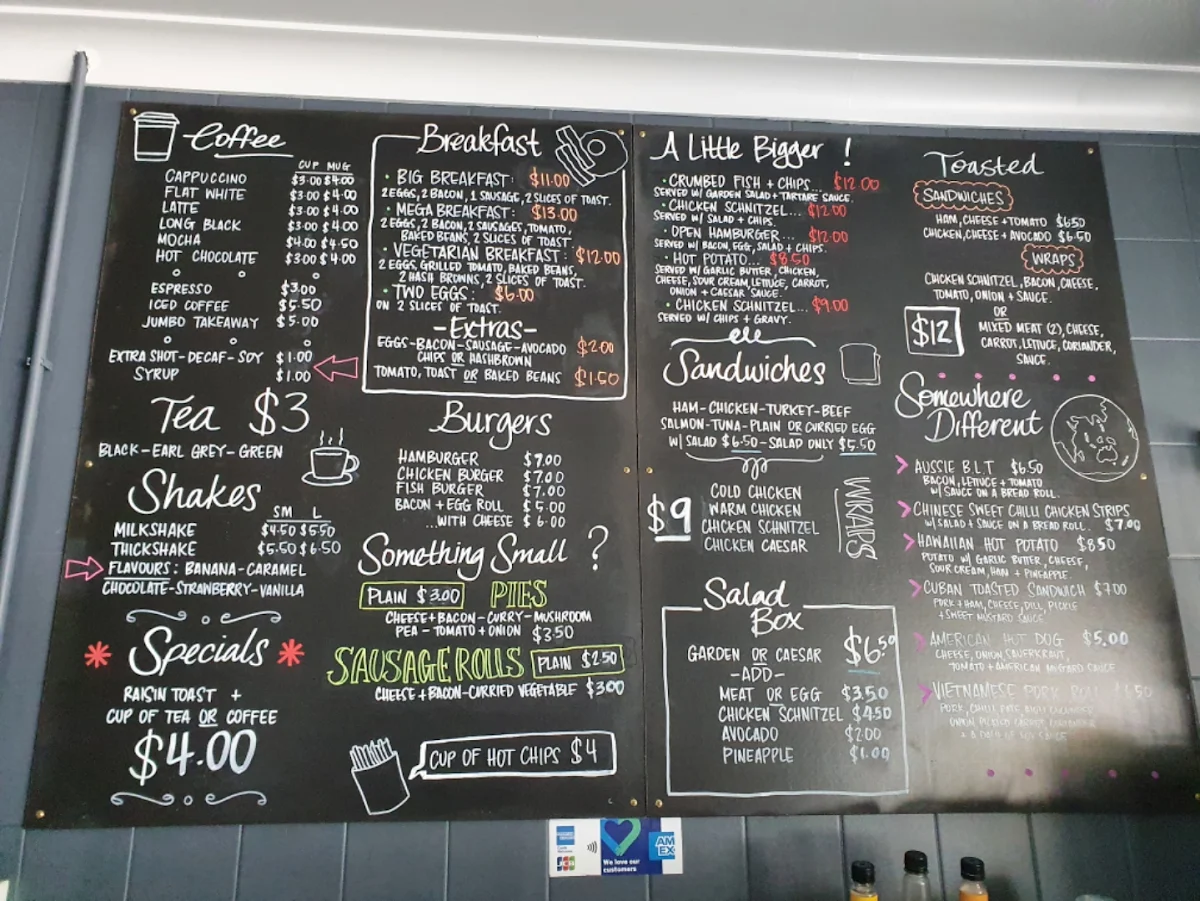 Coffee
CUP MUG
CAPPUCCINO $3.00 $4.00
FLAT WHITE $3.00 $4.00
LATTE $3.00 $4.00
LONG BLACK $3.00 $4.00
MOCHA $4.00 $4.50
HOT CHOCOLATE $3.00 $4.00
ESPRESSO $3.00
ICED COFFEE $5.50
JUMBO TAKEAWAY $5.00
EXTRA SHOT-DECAF-SOY $1.00
SYRUP $1.00
Tea $3
BLACK-EARL GREY-GREEN
Shakes
SM L
MILKSHAKE $4.50 $5.50
THICKSHAKE $5.50 $6.50
FLAVOURS: BANANA-CARAMEL
CHOCOLATE-STRAWBERRY-VANILLA
* Specials *
RAISIN TOAST +
CUP OF TEA OR COFFEE
$4.00
Breakfast
· BIG BREAKFAST: $11.00
2 EGGS, 2 BACON, 1 SAUSAGE, 2 SLICES OF TOAST.
· MEGA BREAKFAST: $13.00
2 EGGS, 2 BACON, 2 SAUSAGES, TOMATO,
BAKED BEANS, 2 SLICES OF TOAST.
· VEGETARIAN BREAKFAST: $12.00
2 EGGS, GRILLED TOMATO, BAKED BEANS,
2 HASH BROWNS, 2 SLICES OF TOAST.
· TWO EGGS: $6.00
ON 2 SLICES OF TOAST.
-Extras-
EGGS-BACON-SAUSAGE-AVOCADO $2.00
CHIPS OR HASHBROWN
TOMATO, TOAST OR BAKED BEANS $1.50
Burgers
HAMBURGER $7.00
CHICKEN BURGER $7.00
FISH BURGER $7.00
BACON + EGG ROLL $5.00
...WITH CHEESE $6.00
Something Small ?
PLAIN $3.00 PIES
CHEESE+BACON-CURRY-MUSHROOM
PEA-TOMATO+ONION $3.50
SAUSAGE ROLLS PLAIN $2.50
CHEESE+BACON-CURRIED VEGETABLE $3.00
CUP OF HOT CHIPS $4
A Little Bigger !
· CRUMBED FISH + CHIPS... $12.00
SERVED W/ GARDEN SALAD + TARTARE SAUCE.
· CHICKEN SCHNITZEL... $12.00
SERVED W/ SALAD + CHIPS.
· OPEN HAMBURGER... $12.00
SERVED W/ BACON, EGG, SALAD + CHIPS.
· HOT POTATO... $8.50
SERVED W/ GARLIC BUTTER, CHICKEN,
CHEESE, SOUR CREAM, LETTUCE, CARROT,
ONION + CAESAR SAUCE.
· CHICKEN SCHNITZEL... $9.00
SERVED W/ CHIPS + GRAVY.
Sandwiches
HAM-CHICKEN-TURKEY-BEEF
SALMON-TUNA-PLAIN OR CURRIED EGG
W/ SALAD $6.50-SALAD ONLY $5.50
$9
COLD CHICKEN
WARM CHICKEN
CHICKEN SCHNITZEL
CHICKEN CAESAR
WRAPS
Salad
Box
GARDEN OR CAESAR $6.50
-ADD-
MEAT OR EGG $3.50
CHICKEN SCHNITZEL $4.50
AVOCADO $2.00
PINEAPPLE $1.00
Toasted
SANDWICHES
HAM, CHEESE+TOMATO $6.50
CHICKEN, CHEESE + AVOCADO $6.50
WRAPS
CHICKEN SCHNITZEL, BACON, CHEESE,
TOMATO, ONION + SAUCE.
OR
$12
MIXED MEAT (2), CHEESE,
CARROT, LETTUCE, CORIANDER,
SAUCE.
Somewhere
Different
AUSSIE B.L.T $6.50
BACON, LETTUCE + TOMATO
W/ SAUCE ON A BREAD ROLL.
CHINESE SWEET CHILLI CHICKEN STRIPS
W/ SALAD + SAUCE ON A BREAD ROLL. $7.00
HAWAIIAN HOT POTATO $8.50
POTATO W/ GARLIC BUTTER, CHEESE,
SOUR CREAM, HAM + PINEAPPLE.
CUBAN TOASTED SANDWICH $7.00
PORK + HAM, CHEESE, DILL, PICKLE
+ SWEET MUSTARD SAUCE
AMERICAN HOT DOG $5.00
CHEESE, ONION, SAUERKRAUT,
TOMATO + AMERICAN MUSTARD SAUCE
VIETNAMESE PORK ROLL
PORK, CHILLI
We love our
customers
AM
EX
JCB